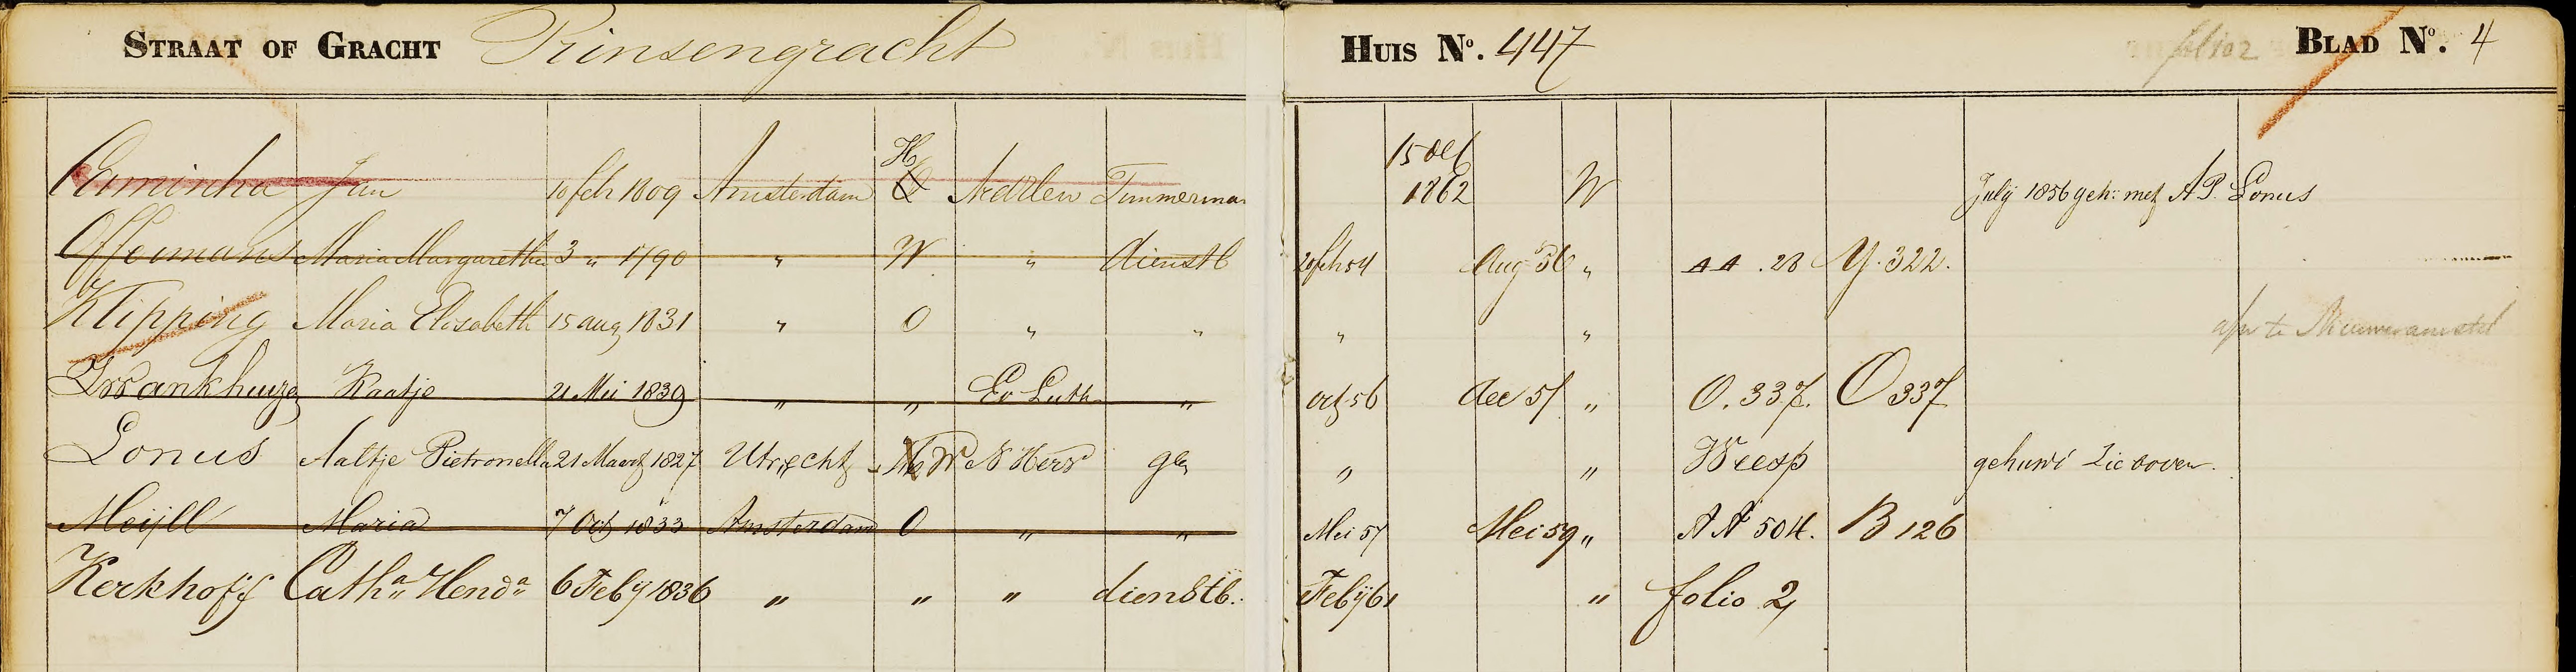 STRAAT OF GRACHT Prinsengracht HUIS No. 447 folio 2 BLAD No. 4
Caminha Jan 10 feb 1809 Amsterdam H Ned Herv Timmerman 15 Oct 1862 W July 1856 geh: met A P. Lonus
Offermans Maria Margaretha 3 " 1790 " W " dienstb 20 feb 54 Aug 56 " AA . 28 Y. 322.
Klipping Maria Elisabeth 15 aug 1831 " O " " " " afw te Nieuweramstel
Kaatje 21 Mei 1839 " " Ev Luth " Oct 56 dec 57 " O. 337. O 337
Lonus Aaltje Pietronella 21 Maart 1827 Utrecht W N Herv gen " " Weesp gehuwd Zie boven.
Meijll Maria 7 Oct 1833 Amsterdam O " " Mei 57 Mei 59 " AA 504. B 126
Kerkhoff Catha Henda 6 Feby 1836 " " " dienstb. Feby 61 " folio 2